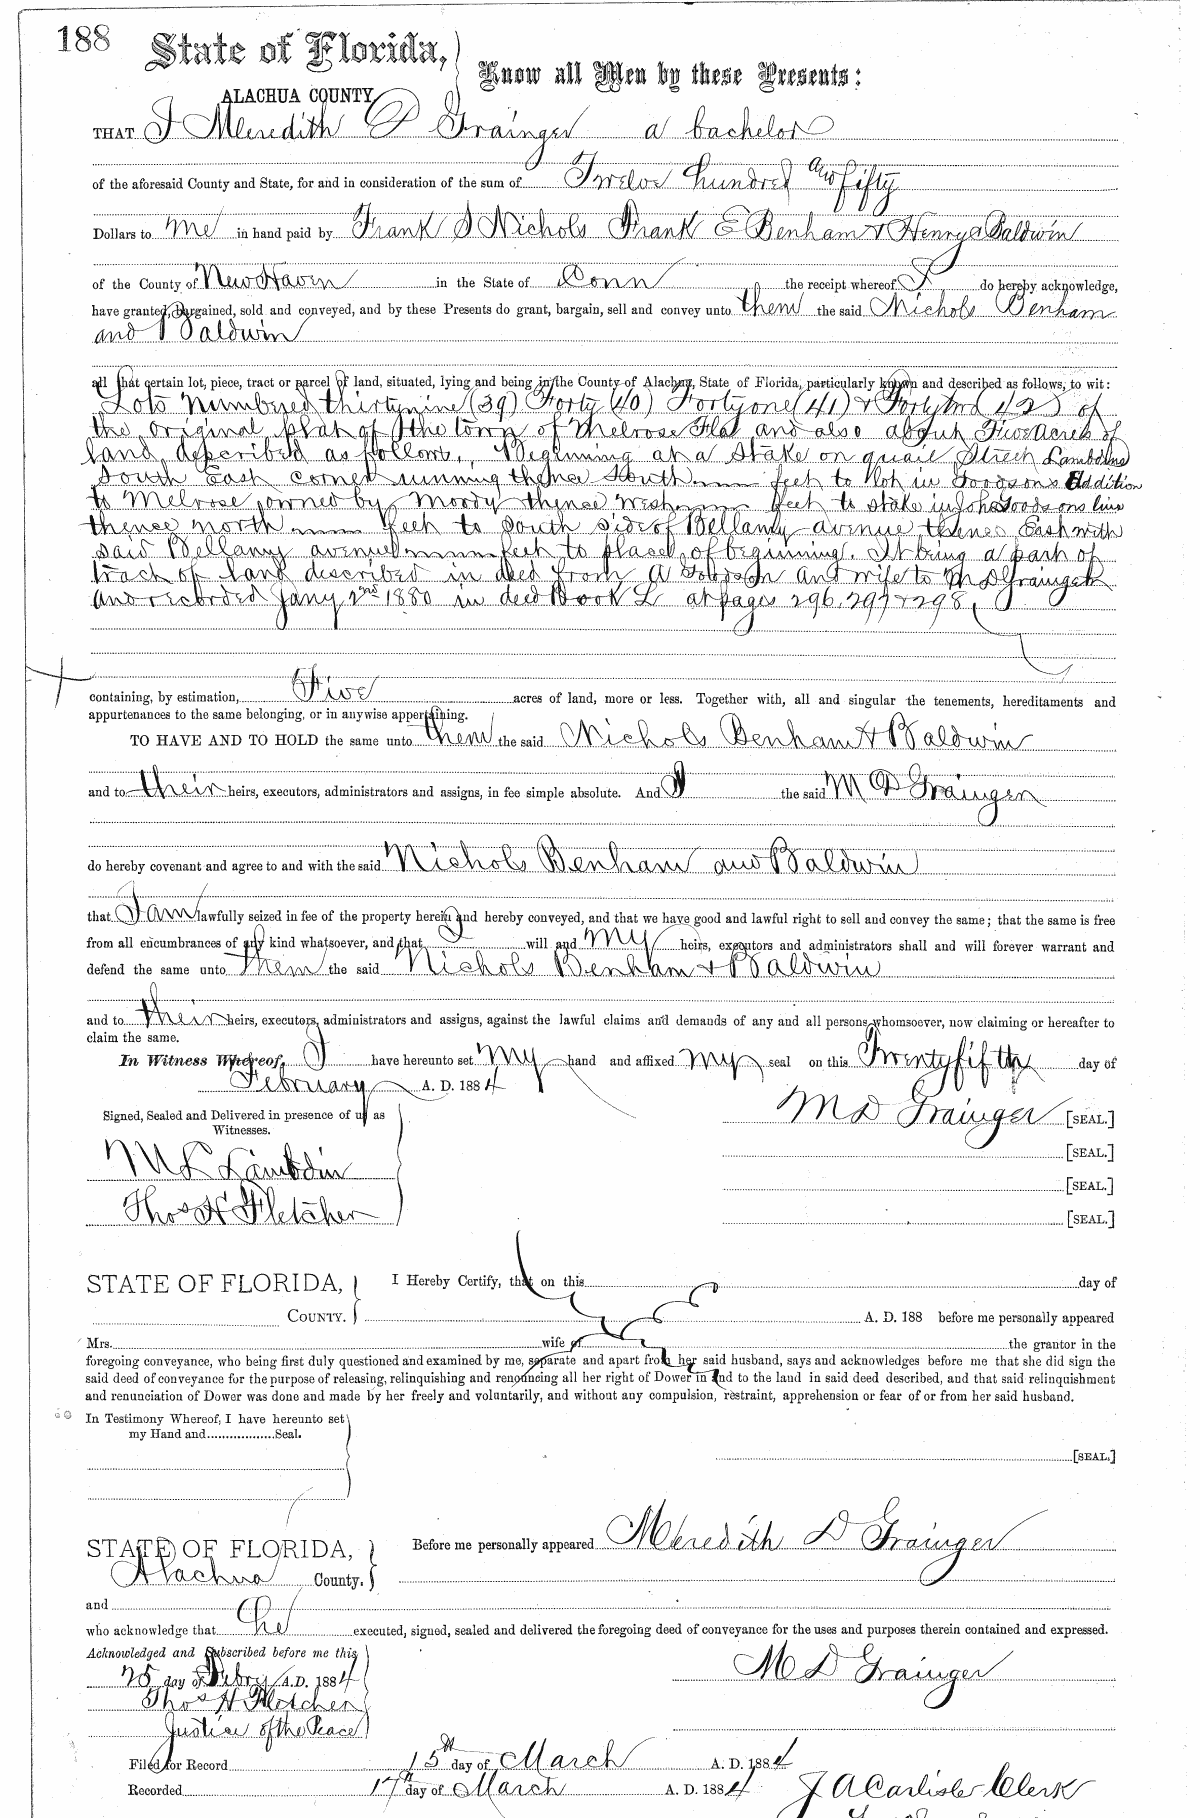 188
State of Florida,
Know all Men by these Presents:
ALACHUA COUNTY
THAT I Meredith D Grainger a bachelor
of the aforesaid County and State, for and in consideration of the sum of Twelve hundred and fifty
Dollars to me in hand paid by Frank S Nichols Frank E Benham & Henry Baldwin
of the County of New Haven in the State of Conn the receipt whereof I do hereby acknowledge,
have granted, bargained, sold and conveyed, and by these Presents do grant, bargain, sell and convey unto them the said Nichols Benham
and Baldwin
all that certain lot, piece, tract or parcel of land, situated, lying and being in the County of Alachua, State of Florida, particularly known and described as follows, to wit:
Lots numbered thirtynine (39) Forty (40) Fortyone (41) & Fortytwo (42) of
the original plat of the town of Melrose Fla and also about Five Acres of
land described as follows, Beginning at a Stake on quail Street Lambdins
South East corner running thence South feet to lot in Goodsons Addition
to Melrose owned by Moody thence west feet to stake in Goodsons line
thence north feet to South side of Bellamy avenue thence East with
said Bellamy avenue feet to place of beginning. It being a part of
tract of land described in deed from A Goodson and wife to M D Grainger
and recorded Jany 2nd 1880 in deed Book L at pages 296, 297 & 298
containing, by estimation, Five acres of land, more or less. Together with, all and singular the tenements, hereditaments and
appurtenances to the same belonging, or in anywise appertaining.
TO HAVE AND TO HOLD the same unto them the said Nichols Benham & Baldwin
and to their heirs, executors, administrators and assigns, in fee simple absolute. And I the said M D Grainger
do hereby covenant and agree to and with the said Nichols Benham and Baldwin
that I am lawfully seized in fee of the property herein and hereby conveyed, and that we have good and lawful right to sell and convey the same; that the same is free
from all encumbrances of any kind whatsoever, and that I will and my heirs, executors and administrators shall and will forever warrant and
defend the same unto them the said Nichols Benham & Baldwin
and to their heirs, executors, administrators and assigns, against the lawful claims and demands of any and all persons whomsoever, now claiming or hereafter to
claim the same.
In Witness Whereof, I have hereunto set my hand and affixed my seal on this Twentyfifth day of
February A. D. 1884
Signed, Sealed and Delivered in presence of us as
Witnesses.
M D Grainger [SEAL.]
[SEAL.]
M L Lambdin
[SEAL.]
Thos H Fletcher
[SEAL.]
STATE OF FLORIDA, I Hereby Certify, that on this day of
COUNTY. A. D. 188 before me personally appeared
Mrs. wife of the grantor in the
foregoing conveyance, who being first duly questioned and examined by me, separate and apart from her said husband, says and acknowledges before me that she did sign the
said deed of conveyance for the purpose of releasing, relinquishing and renouncing all her right of Dower in and to the land in said deed described, and that said relinquishment
and renunciation of Dower was done and made by her freely and voluntarily, and without any compulsion, restraint, apprehension or fear of or from her said husband.
In Testimony Whereof, I have hereunto set
my Hand and Seal.
[SEAL.]
STATE OF FLORIDA, Before me personally appeared Meredith D Grainger
Alachua County.
and
who acknowledge that he executed, signed, sealed and delivered the foregoing deed of conveyance for the uses and purposes therein contained and expressed.
Acknowledged and Subscribed before me this
25 day of Febry A.D. 1884
M D Grainger
Thos H Fletcher
Justice of the Peace
Filed for Record 15th day of March A. D. 1884
Recorded 17th day of March A. D. 1884 J A Carlisle Clerk